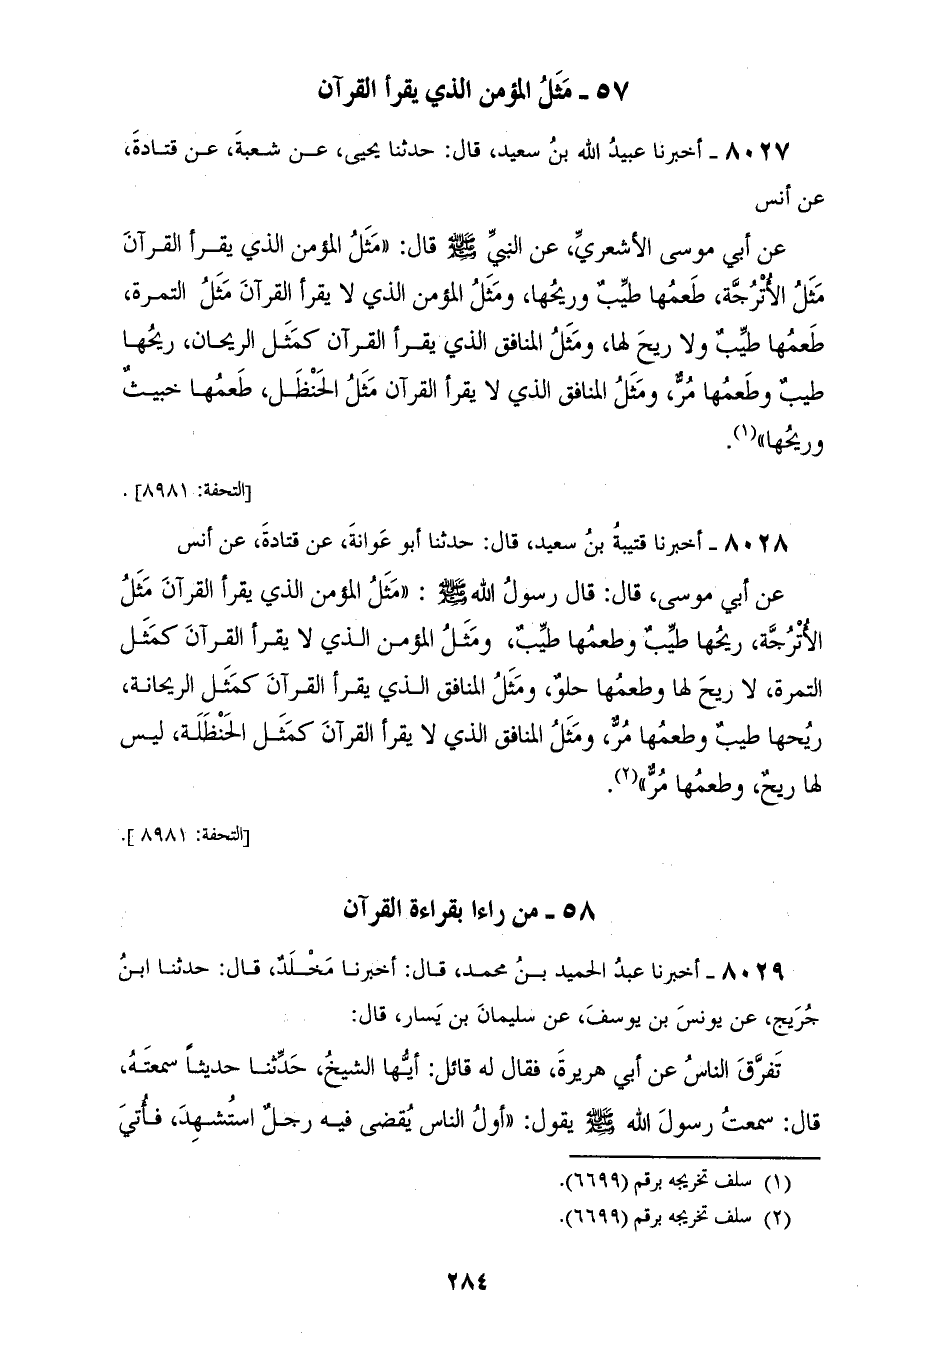 ٥٧ ـ مَثَلُ المؤمن الذي يقرأ القرآن
٨٠٢٧ ـ أخبرنا عبيدُ الله بنُ سعيد، قال: حدثنا يحيى، عـن شـعبةَ، عـن قتـادةَ،
عن أنس
عن أبي موسى الأشعريِّ، عن النبيِّ ﷺ قال: «مَثَلُ المؤمن الذي يقـرأ القـرآنَ
مَثَلُ الأُتْرُجَّة، طَعمُها طيِّبٌ وريحُها، ومَثَلُ المؤمن الذي لا يقرأ القرآنَ مَثَلُ التمرة،
طَعمُها طيِّبٌ ولا ريحَ لها، ومَثَلُ المنافق الذي يقـرأ القـرآن كمثَـل الريحـان، ريحُهـا
طيبٌ وطَعمُها مُرٌّ، ومَثَلُ المنافق الذي لا يقرأ القرآن مَثَلُ الحَنْظَـل، طَعمُهـا خبيـثٌ
وريحُها»(١).
[التحفة: ٨٩٨١] .
٨٠٢٨ ـ أخبرنا قتيبةُ بنُ سعيد، قال: حدثنا أبو عَوانةَ، عن قتادةَ، عن أنس
عن أبي موسى، قال: قال رسولُ الله ﷺ : «مَثَلُ المؤمن الذي يقرأ القرآنَ مَثَلُ
الأُتْرُجَّة، ريحُها طيِّبٌ وطعمُها طيِّبٌ، ومَثَـلُ المؤمـن الـذي لا يقـرأ القـرآنَ كمثَـل
التمرة، لا ريحَ لها وطعمُها حلوٌ، ومَثَلُ المنافق الـذي يقـرأ القـرآنَ كمثَـل الريحانـة،
ريُحها طيبٌ وطعمُها مُرٌّ، ومَثَلُ المنافق الذي لا يقرأ القرآنَ كمثَـل الحَنْظَلَـة، ليـس
لها ريحٌ، وطعمُها مُرٌّ»(٢).
[التحفة: ٨٩٨١ ].
٥٨ ـ من راءا بقراءة القرآن
٨٠٢٩ ـ أخبرنا عبدُ الحميد بـنُ محمد، قـال: أخبرنـا مَخْـلَـدٌ، قـال: حدثنـا ابـنُ
جُرَيج، عن يونسَ بن يوسفَ، عن سليمانَ بن يَسار، قال:
تَفرَّقَ الناسُ عن أبي هريرةَ، فقال له قائل: أيُّها الشيخُ، حَدِّثْنـا حديثـاً سمعتَـهُ،
قال: سمعتُ رسولَ الله ﷺ يقول: «أولُ الناس يُقضى فيـه رجـلٌ استُشـهِدَ، فـأُتيَ
(١) سلف تخريجه برقم (٦٦٩٩).
(٢) سلف تخريجه برقم (٦٦٩٩).
٢٨٤